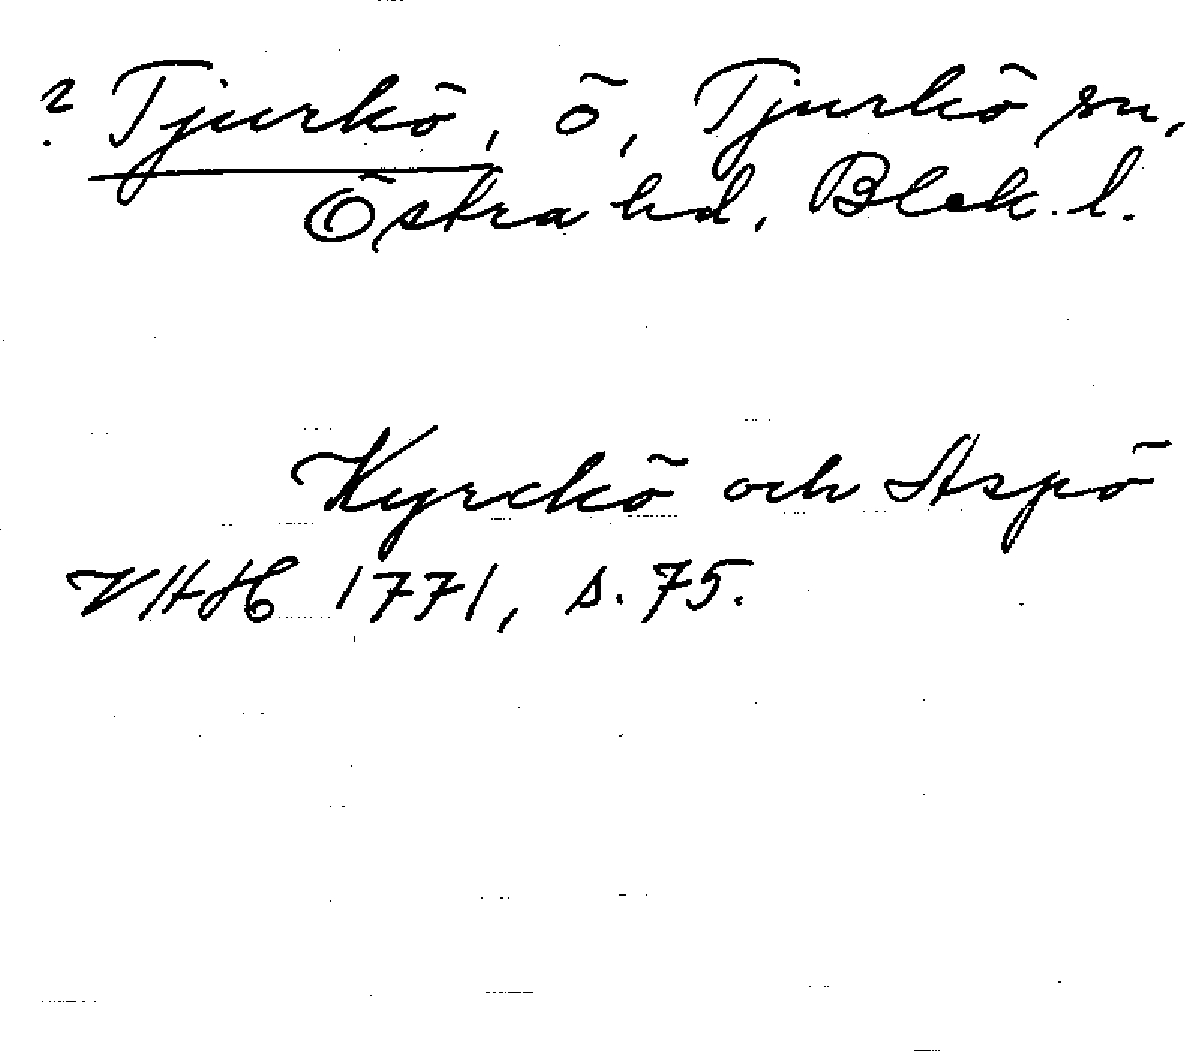 ? Tjurkö, ö, Tjurkö sn,
Östra hd, Blek. l.
Kyrckö och Aspö
VHH 1771, s. 75.